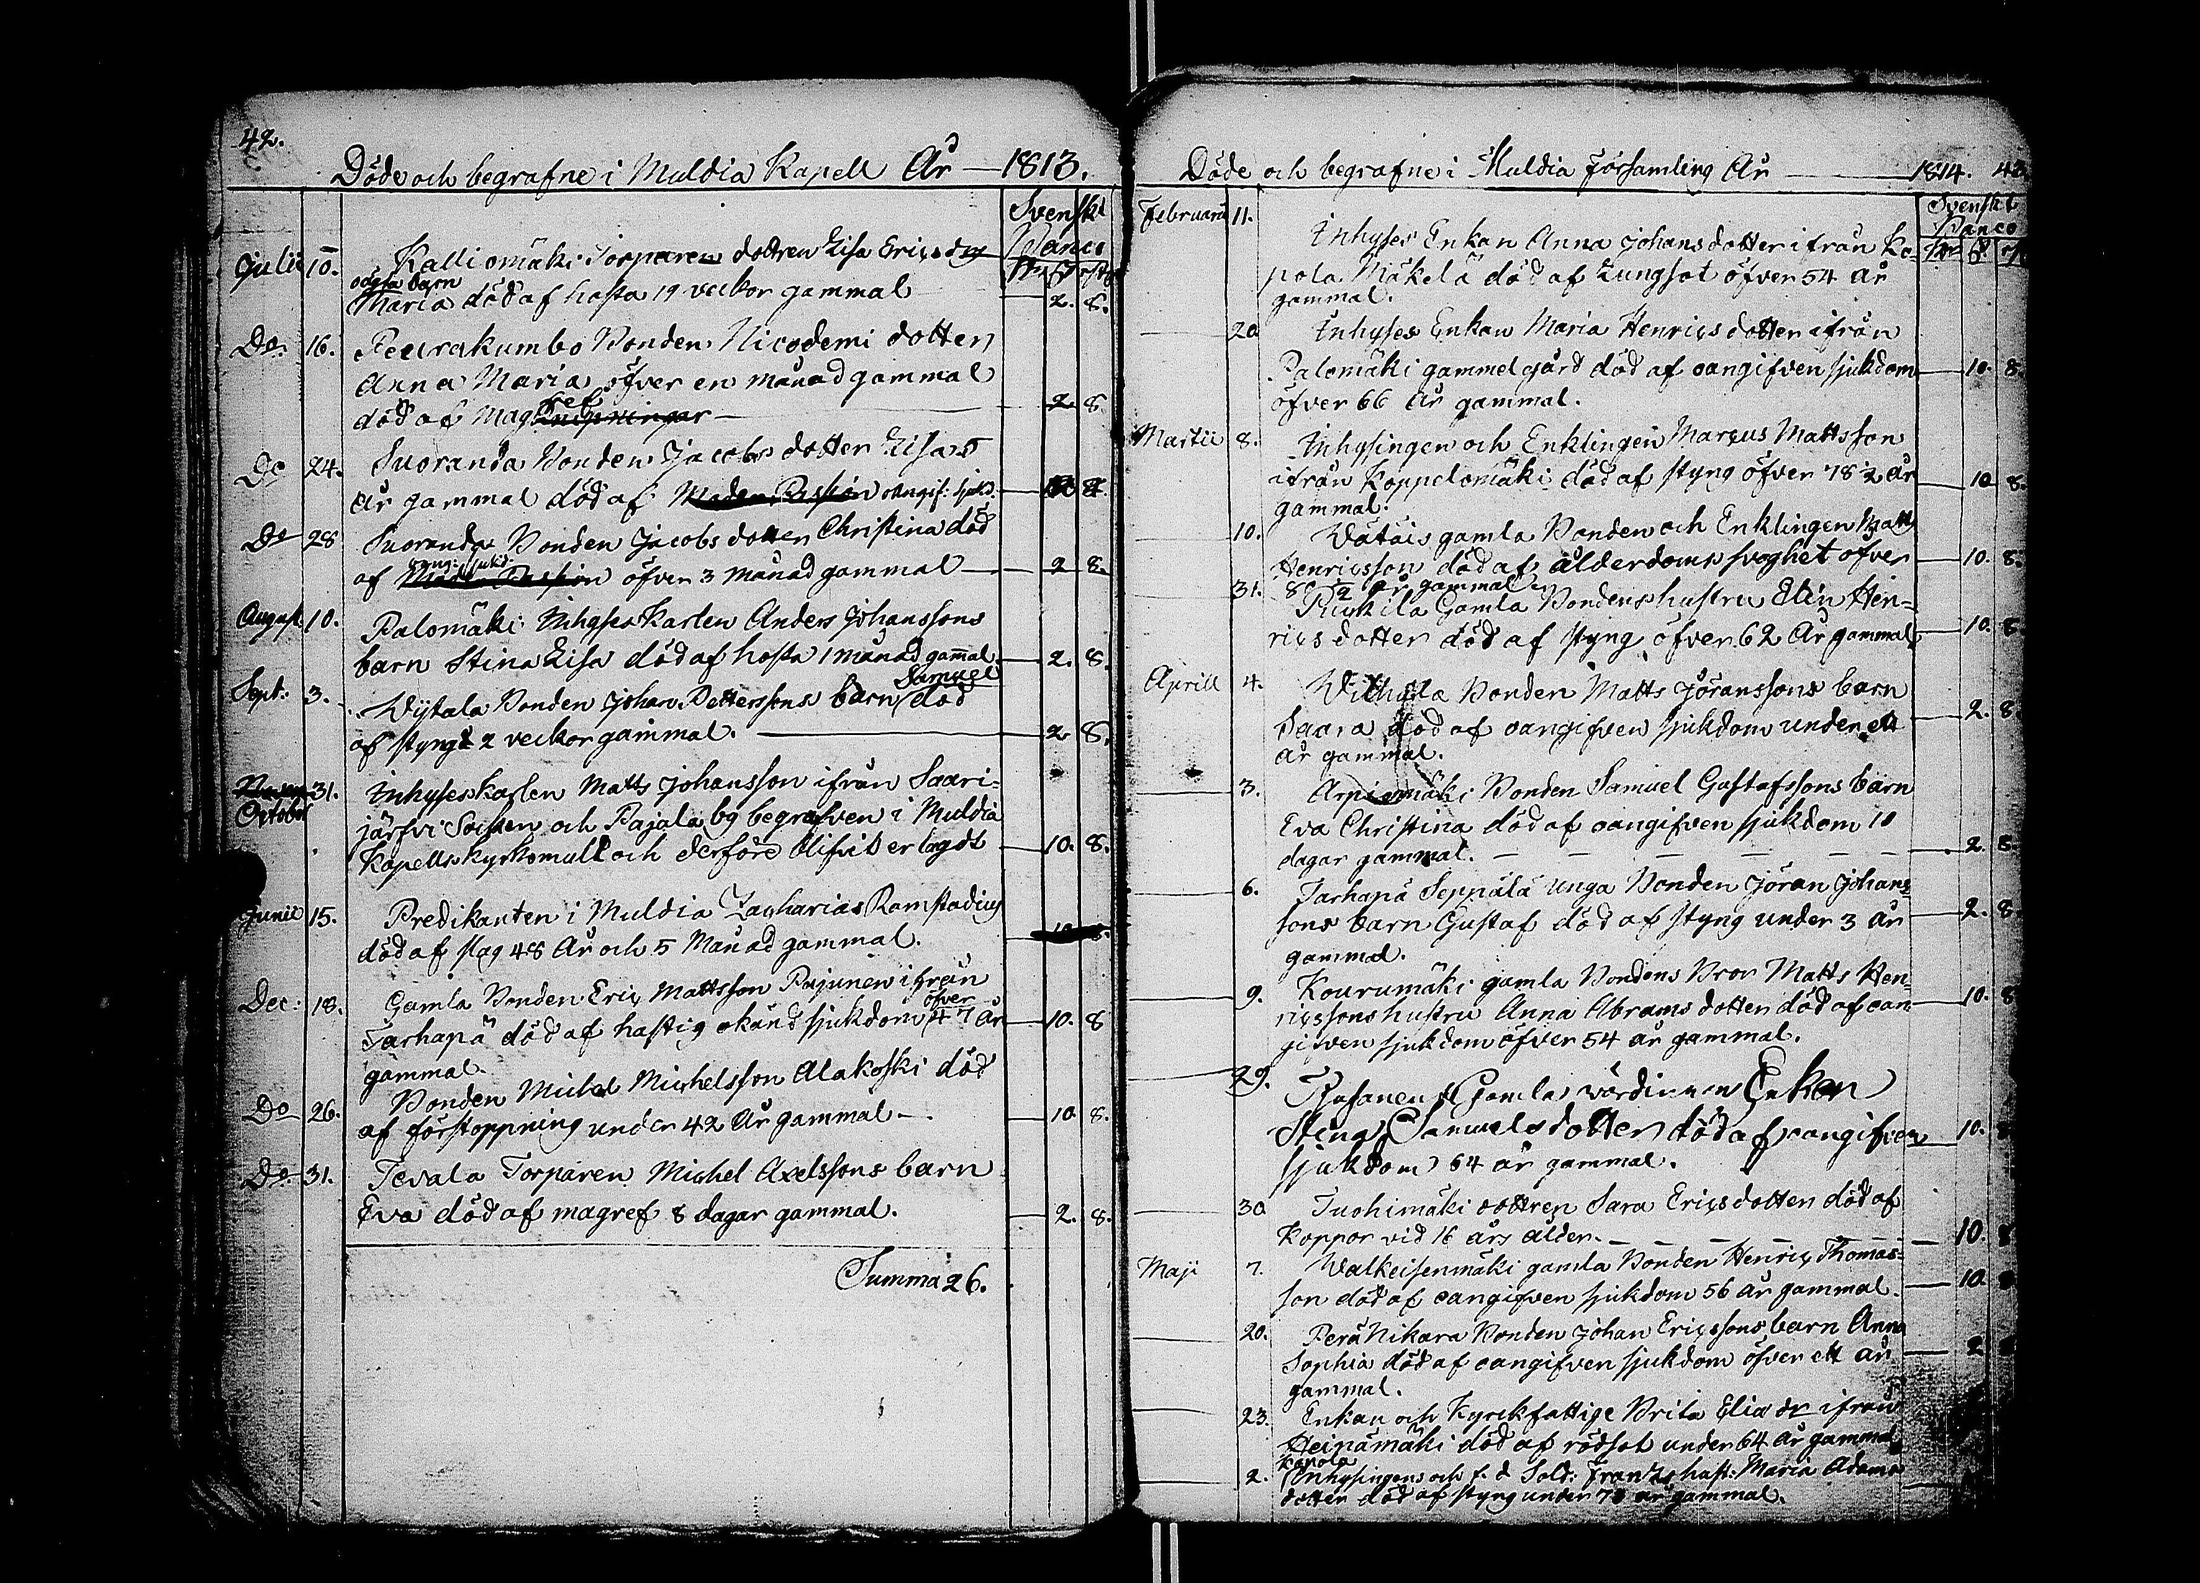 42.
Döde och begrafne i Muldia Kapell År — 1813.
Svenskt
Banco
Julii 10. Kalliomäki Torparen dottren Lisa Ericsdr
oägta barn
Maria död af hosta 19 veckor gammal — 2. 8.
Do. 16. Peurakumbo Bonden Nicodemi dotter
Anna Maria öfver en månad gammal
ref
död af Mag — 2 8
Do 24. Suoranda Bonden Jacobs dotter Lisa 5
år gammal död af oangif: sjukd.
Do 28 Suoranda Bonden Jacobs dotter Christina död
oang: sjukd
af öfver 3 månad gammal — 2 8.
August. 10. Palomäki Inhyses Karlen Anders Johanssons
barn Stina Lisa död af hosta 1 månad gamal — 2. 8.
Samuel
Sept: 3. Wytala Bonden Johan Petterssons barn död
af styng 2 veckor gammal. — 2 8.
31. Inhyses karlen Matts Johansson ifrån Saari-
Octobr järfvi Socken och Pajala by begrafven i Muldia
Kapells kyrkomull och derföre blifvit erlagdt — 10. 8.
Junii 15. Predikanten i Muldia Zacharias Ramstadius
död af slag 48 År och 5 Månad gammal. 10 8.
Dec: 18. Gamla Bonden Eric Mattsson Pajunen ifrån
öfver
Tarhapä död af hastig okänd sjukdom 47 År — 10. 8
gammal.
Bonden Michel Michelsson Alakoski död
Do 26. af förstoppning under 42 År gammal — 10 8.
Do. 31. Tevala Torparen Michel Axelssons barn
Eva död af magref 8 dagar gammal. — 2. 8.
Summa 26.
Döde och begrafne i Muldia församling År — 1814. 43.
Svenskt
Banco
Februarii 11. Inhyses Enkan Anna Johansdotter ifrån Ko-
pola Mäkelä död af Lungsot öfver 54 år
gammal.
20 Inhyses Enkan Maria Henricsdotter ifrån
Palomäki gammelgård död af oangifven sjukdom — 10. 8.
öfver 66 År gammal.
Martii 8. Inhysingen och Enklingen Marcus Mattsson
ifrån Koppelomäki död af styng öfver 78 ½ År — 10 8.
gammal.
10. Wätäis gamla Bonden och Enklingen Matts
Henricsson död af ålderdoms svaghet öfver — 10. 8.
år gammal
31. Gamla Bondens hustru Elin Hen-
ricsdotter död af styng öfver 62 År gammal — 10. 8
Aprill 4. Bonden Matts Jöranssons barn
Saara död af oangifven sjukdom under ett — 2. 8.
år gammal.
3. Arpiomäki Bonden Samuel Gustafssons barn
Eva Christina död af oangifven sjukdom 10
dagar gammal. — 2. 8.
6. Tarhapä Seppälä unga Bonden Jöran Johans-
sons barn Gustaf död af styng under 3 år — 2. 8.
gammal.
9. Kourumäki gamla Bondens Bror Matts Hen-
ricssons hustru Anna Abrams dotter död af oan- — 10. 8
gifven sjukdom öfver 54 år gammal.
29. Gamla värdinnan Enkan
Stina Samuelsdotter död af oangifven — 10. 8
sjukdom 64 år gammal.
30 Tuohimäki dottren Sara Ericsdotter död af
Koppor vid 16 års ålder. — 10. 8
Maji 7. Walkeisenmäki gamla Bonden Henric Thomas-
son död af oangifven sjukdom 56 år gammal. — 10. 8
20. Perä Nikara Bonden Johan Ericssons barn Anna
Sophia död af oangifven sjukdom öfver ett år — 2
gammal.
23. Enkan och Kyrckfattige Brita Elia dr ifrån
Heinämäki död af rödsot under 64 år gammal
Kapola
2. Inhysingens och f. d Sold: Frantz hust: Maria Adams
dotter död af styng under 78 år gammal.